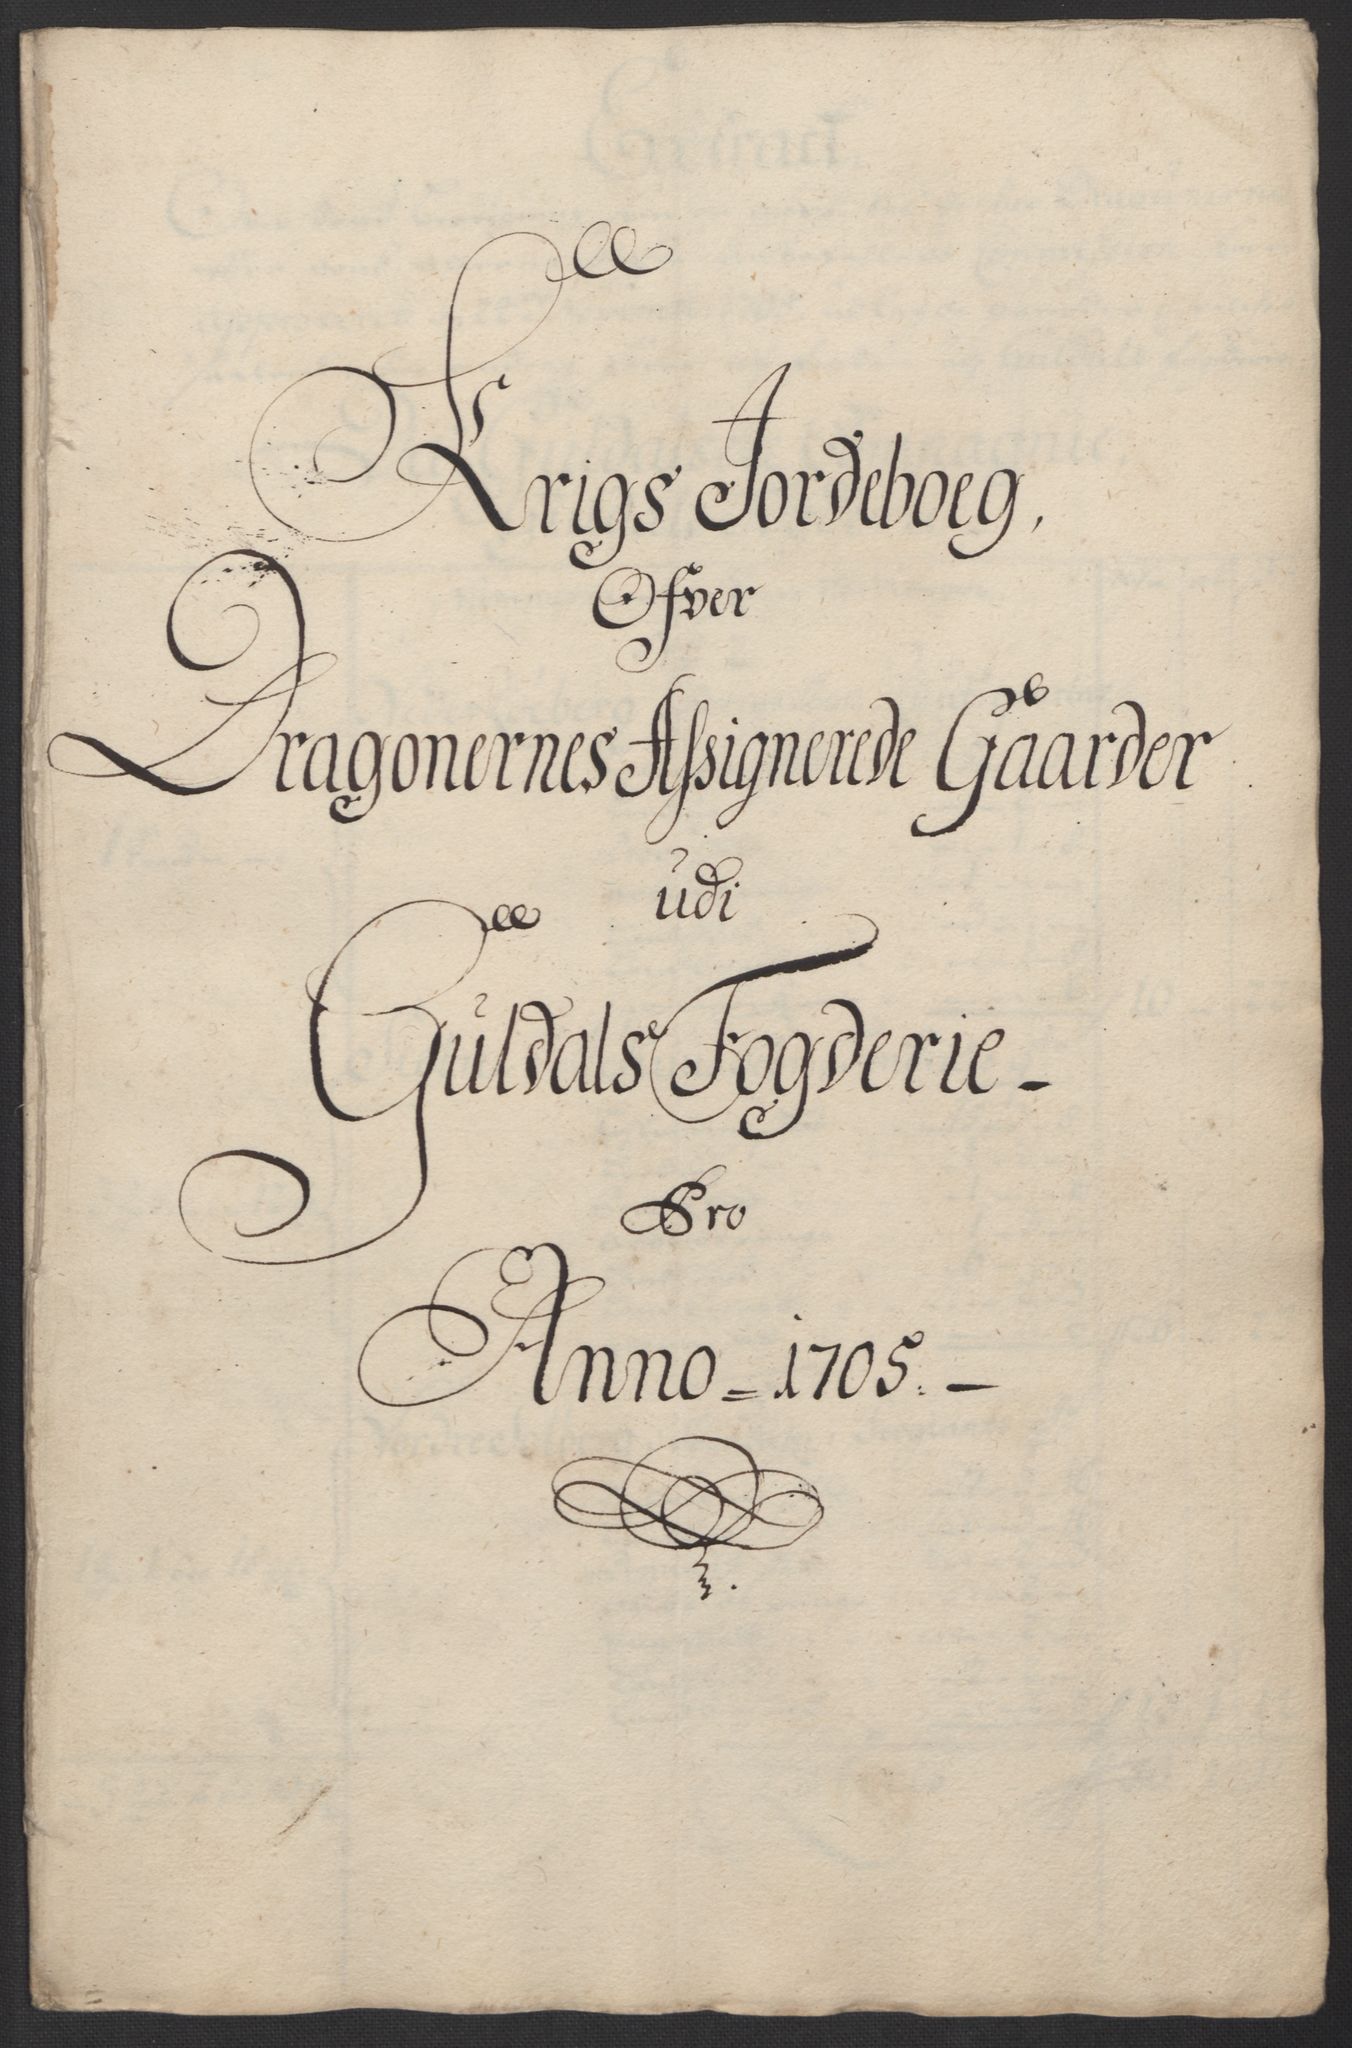 Krigs Jordeboeg,
Ofver
Dragonernes Assignerede Gaarder
udi
Guldals Fogderie -
Pro
Anno = 1705. -